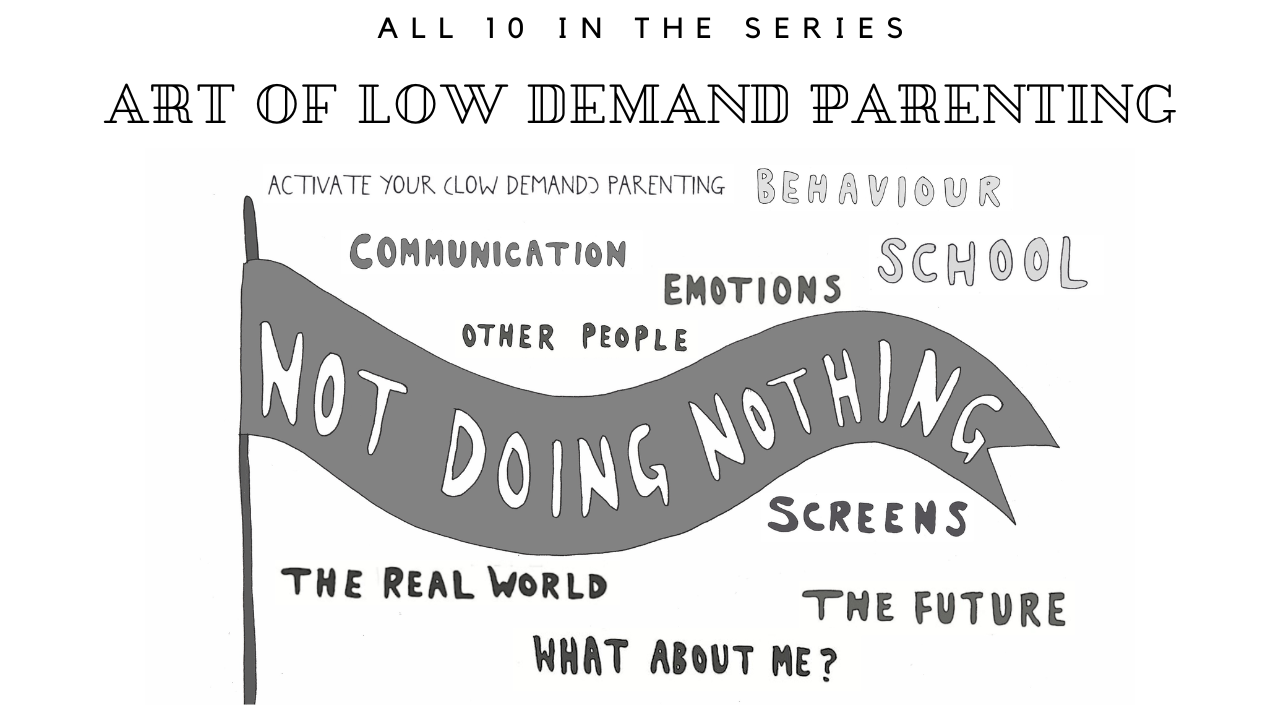 ALL 10 IN THE SERIES
ART OF LOW DEMAND PARENTING
ACTIVATE YOUR (LOW DEMAND) PARENTING
BEHAVIOUR
COMMUNICATION
SCHOOL
EMOTIONS
OTHER PEOPLE
NOT DOING NOTHING
SCREENS
THE REAL WORLD
THE FUTURE
WHAT ABOUT ME?